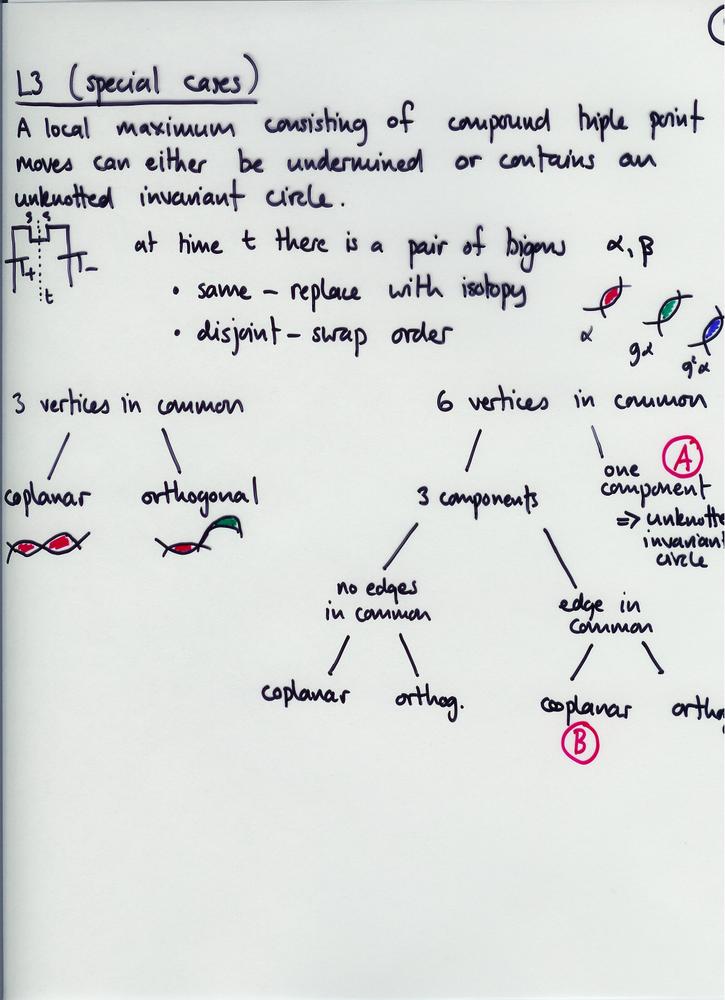 L3 (special cases)
A local maximum consisting of compound triple point
moves can either be undermined or contains an
unknotted invariant circle.
s s
T+ T-
t
at time t there is a pair of bigons α, β
• same - replace with isotopy
• disjoint - swap order
α
gα
g²α
3 vertices in common
coplanar orthogonal
6 vertices in common
3 components
one
component
A
⇒ unknotte
invarian
circle
no edges
in common
edge in
common
coplanar orthog.
coplanar ortho
B